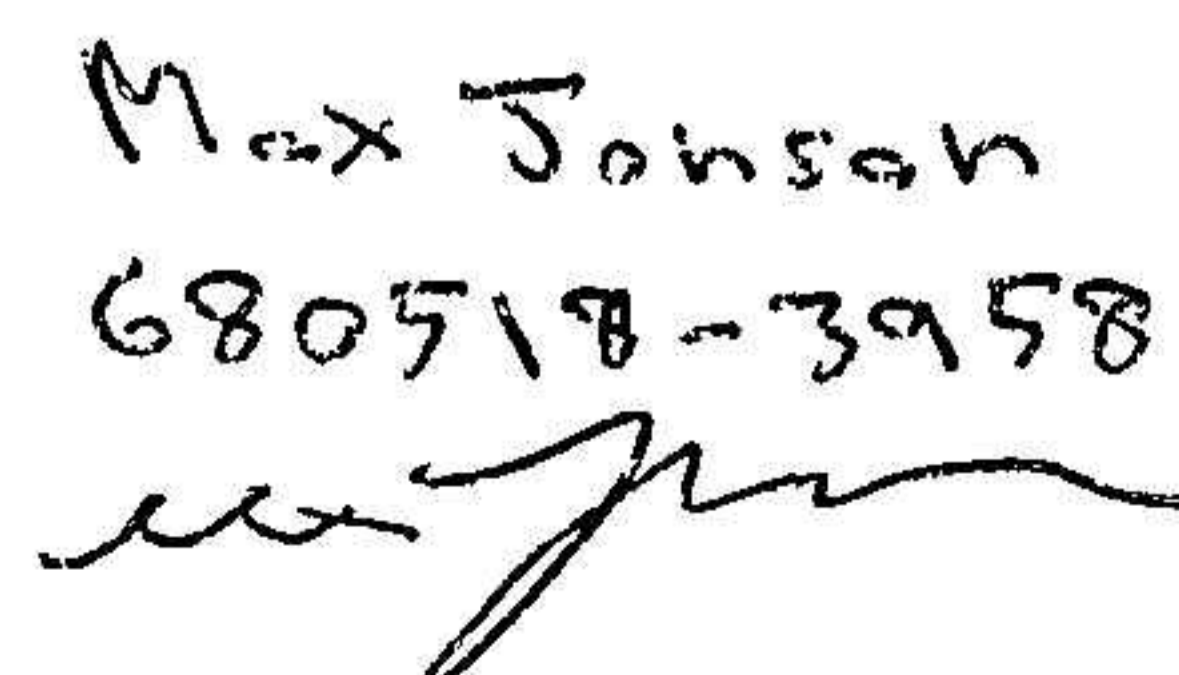 Max Jonson
680518-3958